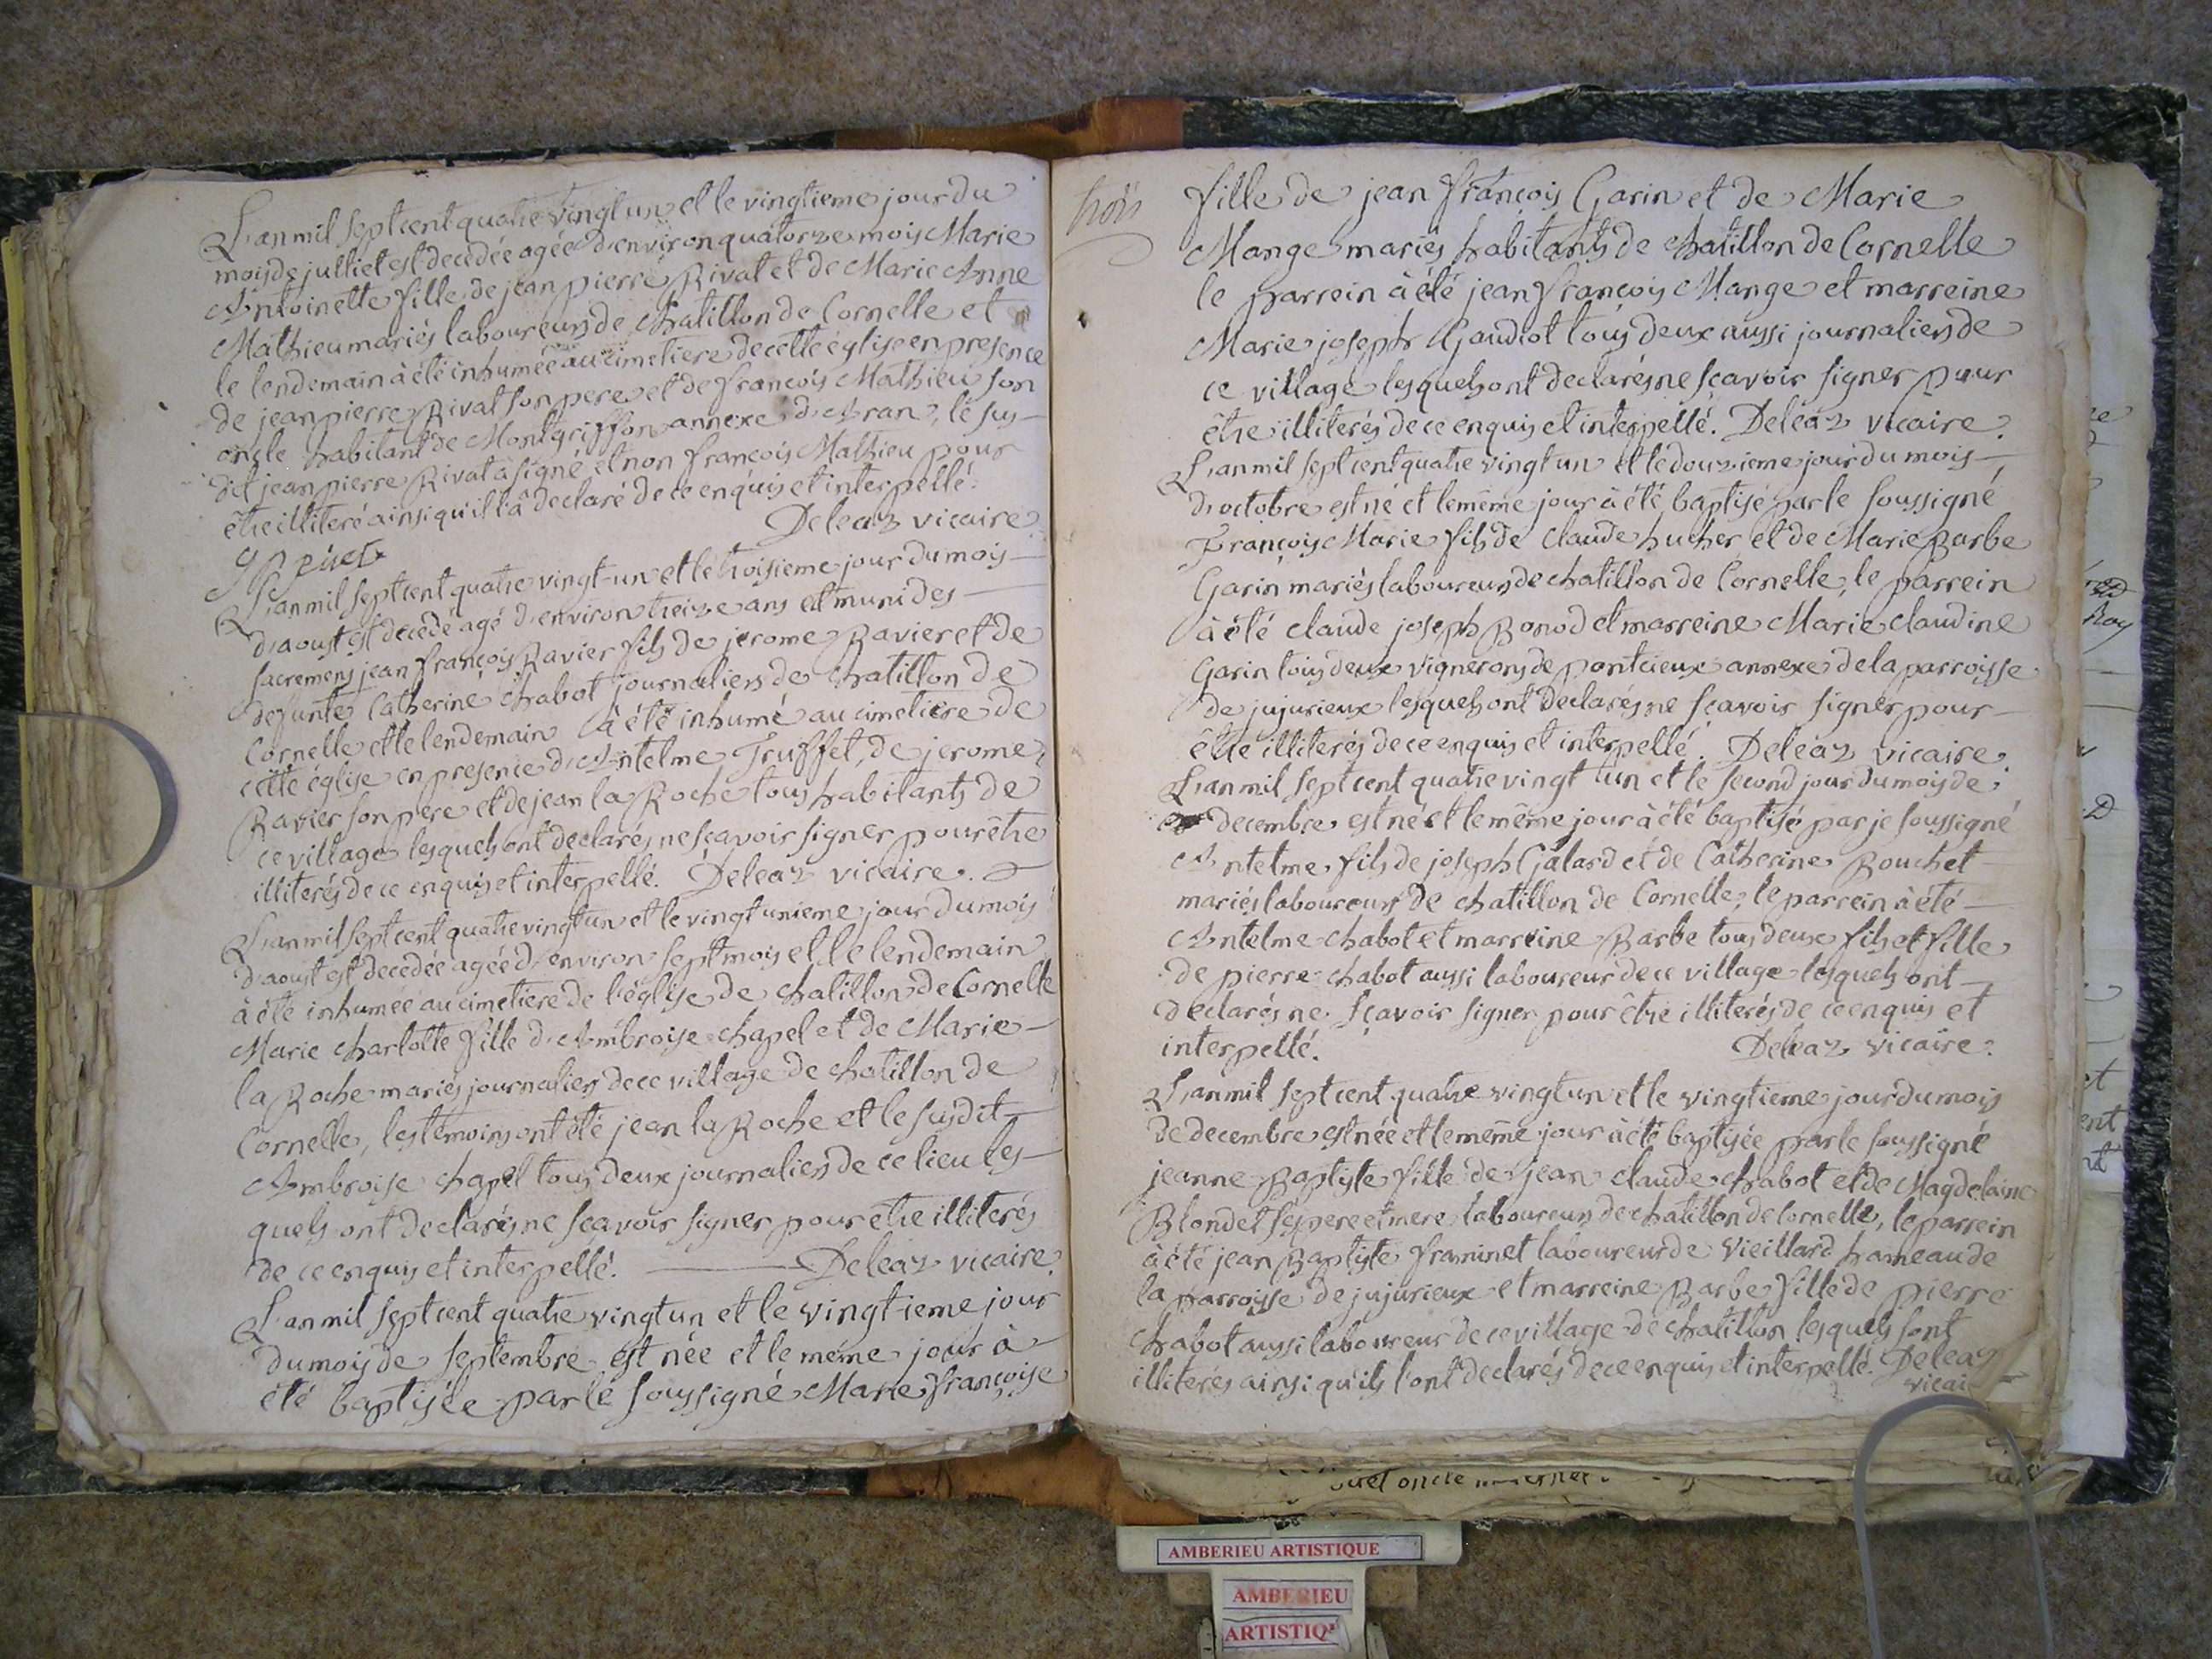 L'an mil sept cent quatre vingt un et le vingtieme jour du
mois de julliet est decedée agée d'environ quatorze mois Marie
Antoinette fille de jean pierre Rivat et de Marie Anne
Mathieu mariés laboureurs de chatillon de Cornelle et
le lendemain à été inhumée au cimetiere de cette église en presence
de jean pierre Rival son pere et de françois Mathieu son
oncle habitant de Montgriffon annexe d'Aran, le sus-
dit jean pierre Rivat à signé et non françois Mathieu pour
être illiteré ainsi qu'il l'à declaré de ce enquis et interpellé.
Deleaz vicaire
L'an mil sept cent quatre vingt-un et le troisieme jour du mois
d'aoust est decedé agé d'environ treize ans et muni des
sacremens jean françois Ravier fils de jerome Ravier et de
defunte Catherine chabot journaliers de chatillon de
Cornelle et le lendemain à été inhumé au cimetiere de
cette église en presence d'Antelme Truffet, de jerome
Ravier son pere et de jean la Roche tous habitants de
ce village lesquels ont declarés ne sçavoir signer pour être
illiterés de ce enquis et interpellé. Deleaz vicaire.
L'an mil sept cent quatre vingt un et le vingt unieme jour du mois
d'aoust est decedée agée d'environ sept mois et le lendemain
à été inhumée au cimetiere de l'église de chatillon de Cornelle
Marie Charlotte fille d'Ambroise chapel et de Marie
la Roche mariés journaliers de ce village de chatillon de
Cornelle, les temoins ont été jean la Roche et le susdit
Ambroise chapel tous deux journaliers de ce lieu les-
quels ont declarés ne sçavoir signer pour être illiterés
de ce enquis et interpellé. Deleaz vicaire.
L'an mil sept cent quatre vingt un et le vingtieme jour
du mois de septembre est née et le même jour à
été baptisée par le soussigné Marie françoise
trois
fille de jean françois Garin et de Marie
Mange mariés habitants de chatillon de Cornelle
le parrein à été jean françois Mange et marreine
Marie joseph Gaudiot tous deux aussi journaliers de
ce village lesquels ont declarés ne sçavoir signer pour
être illiterés de ce enquis et interpellé. Deleaz vicaire.
L'an mil sept cent quatre vingt un et le douzieme jour du mois
d'octobre est né et le même jour à été baptisé par le soussigné
François Marie fils de claude hucher et de Marie Barbe
Garin mariés laboureurs de chatillon de Cornelle, le parrein
à été claude joseph Bonod et marreine Marie claudine
Garin tous deux vignerons de pontcieux annexe de la parroisse
de jujurieux lesquels ont declarés ne sçavoir signer pour
être illiterés de ce enquis et interpellé. Deleaz vicaire.
L'an mil sept cent quatre vingt un et le second jour du mois de
decembre est né et le même jour à été baptisé par je soussigné
Antelme fils de joseph Galard et de Catherine Bouchet
mariés laboureurs de chatillon de Cornelle, le parrein à été
Antelme chabot et marreine Barbe tous deux fils et fille
de pierre chabot aussi laboureur de ce village lesquels ont
declarés ne sçavoir signer pour être illiterés de ce enquis et
interpellé. Deleaz vicaire.
L'an mil sept cent quatre vingt un et le vingtieme jour du mois
de decembre est née et le même jour à été baptisée par le soussigné
jeanne Baptiste fille de jean claude chabot et de Magdelaine
Blondet ses pere et mere laboureurs de chatillon de Cornelle, le parrein
à été jean Baptiste framinet laboureur de Vieillard hameau de
la parroisse de jujurieux et marreine Barbe fille de pierre
chabot aussi laboureur de ce village de chatillon lesquels sont
illiterés ainsi qu'ils l'ont declarés de ce enquis et interpellé. Deleaz
vicai
AMBERIEU ARTISTIQUE
AMBERIEU
ARTISTIQ